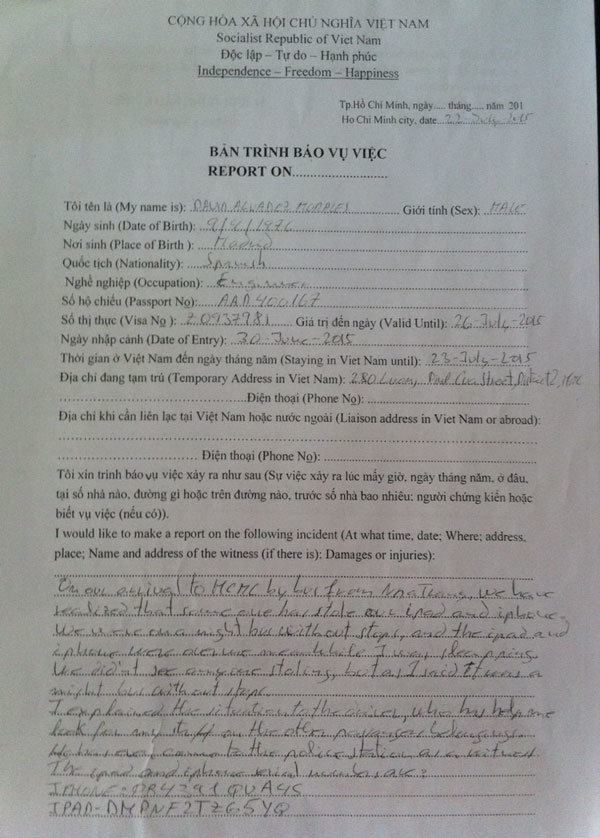 CỘNG HÒA XÃ HỘI CHỦ NGHĨA VIỆT NAM
Socialist Republic of Viet Nam
Độc lập – Tự do – Hạnh phúc
Independence – Freedom – Happiness
Tp.Hồ Chí Minh, ngày..... tháng..... năm 201
Ho Chi Minh city, date..22-July-2015
BẢN TRÌNH BÁO VỤ VIỆC
REPORT ON......................
Tôi tên là (My name is): DAVID ALVAREZ MORALES Giới tính (Sex): MALE
Ngày sinh (Date of Birth): 9/4/1976
Nơi sinh (Place of Birth ): Madrid
Quốc tịch (Nationality): Spanish
Nghề nghiệp (Occupation): Engineer
Số hộ chiếu (Passport No): AAA400167
Số thị thực (Visa No ): Z0937981 Giá trị đến ngày (Valid Until): 26-July-2015
Ngày nhập cảnh (Date of Entry): 30-June-2015
Thời gian ở Việt Nam đến ngày tháng năm (Staying in Viet Nam until): 23-July-2015
Địa chỉ đang tạm trú (Temporary Address in Viet Nam): 280 Street, District 2,
Điện thoại (Phone No):
Địa chỉ khi cần liên lạc tại Việt Nam hoặc nước ngoài (Liaison address in Viet Nam or abroad):
Điện thoại (Phone No):
Tôi xin trình báo vụ việc xảy ra như sau (Sự việc xảy ra lúc mấy giờ, ngày tháng năm, ở đâu,
tại số nhà nào, đường gì hoặc trên đường nào, trước số nhà bao nhiêu; người chứng kiến hoặc
biết vụ việc (nếu có)).
I would like to make a report on the following incident (At what time, date; Where; address,
place; Name and address of the witness (if there is); Damages or injuries):
On our arrival to HCMC by bus from Nha Trang, we have
realized that some one has stole our ipad and iphone.
We were on a night bus without stops, and the ipad and
iphone were meanwhile I was sleepping.
We didn't see anyone staling, but as I said it was a
night bus without stops.
I explained the situation to the driver, who has help me
look for my staff on the other passengers belongings.
He has even came to the police station as a witness.
The ipad and iphone serial numbers are:
IPHONE: DR4391QVA4S
IPAD-DMPNF2TZG5YQ